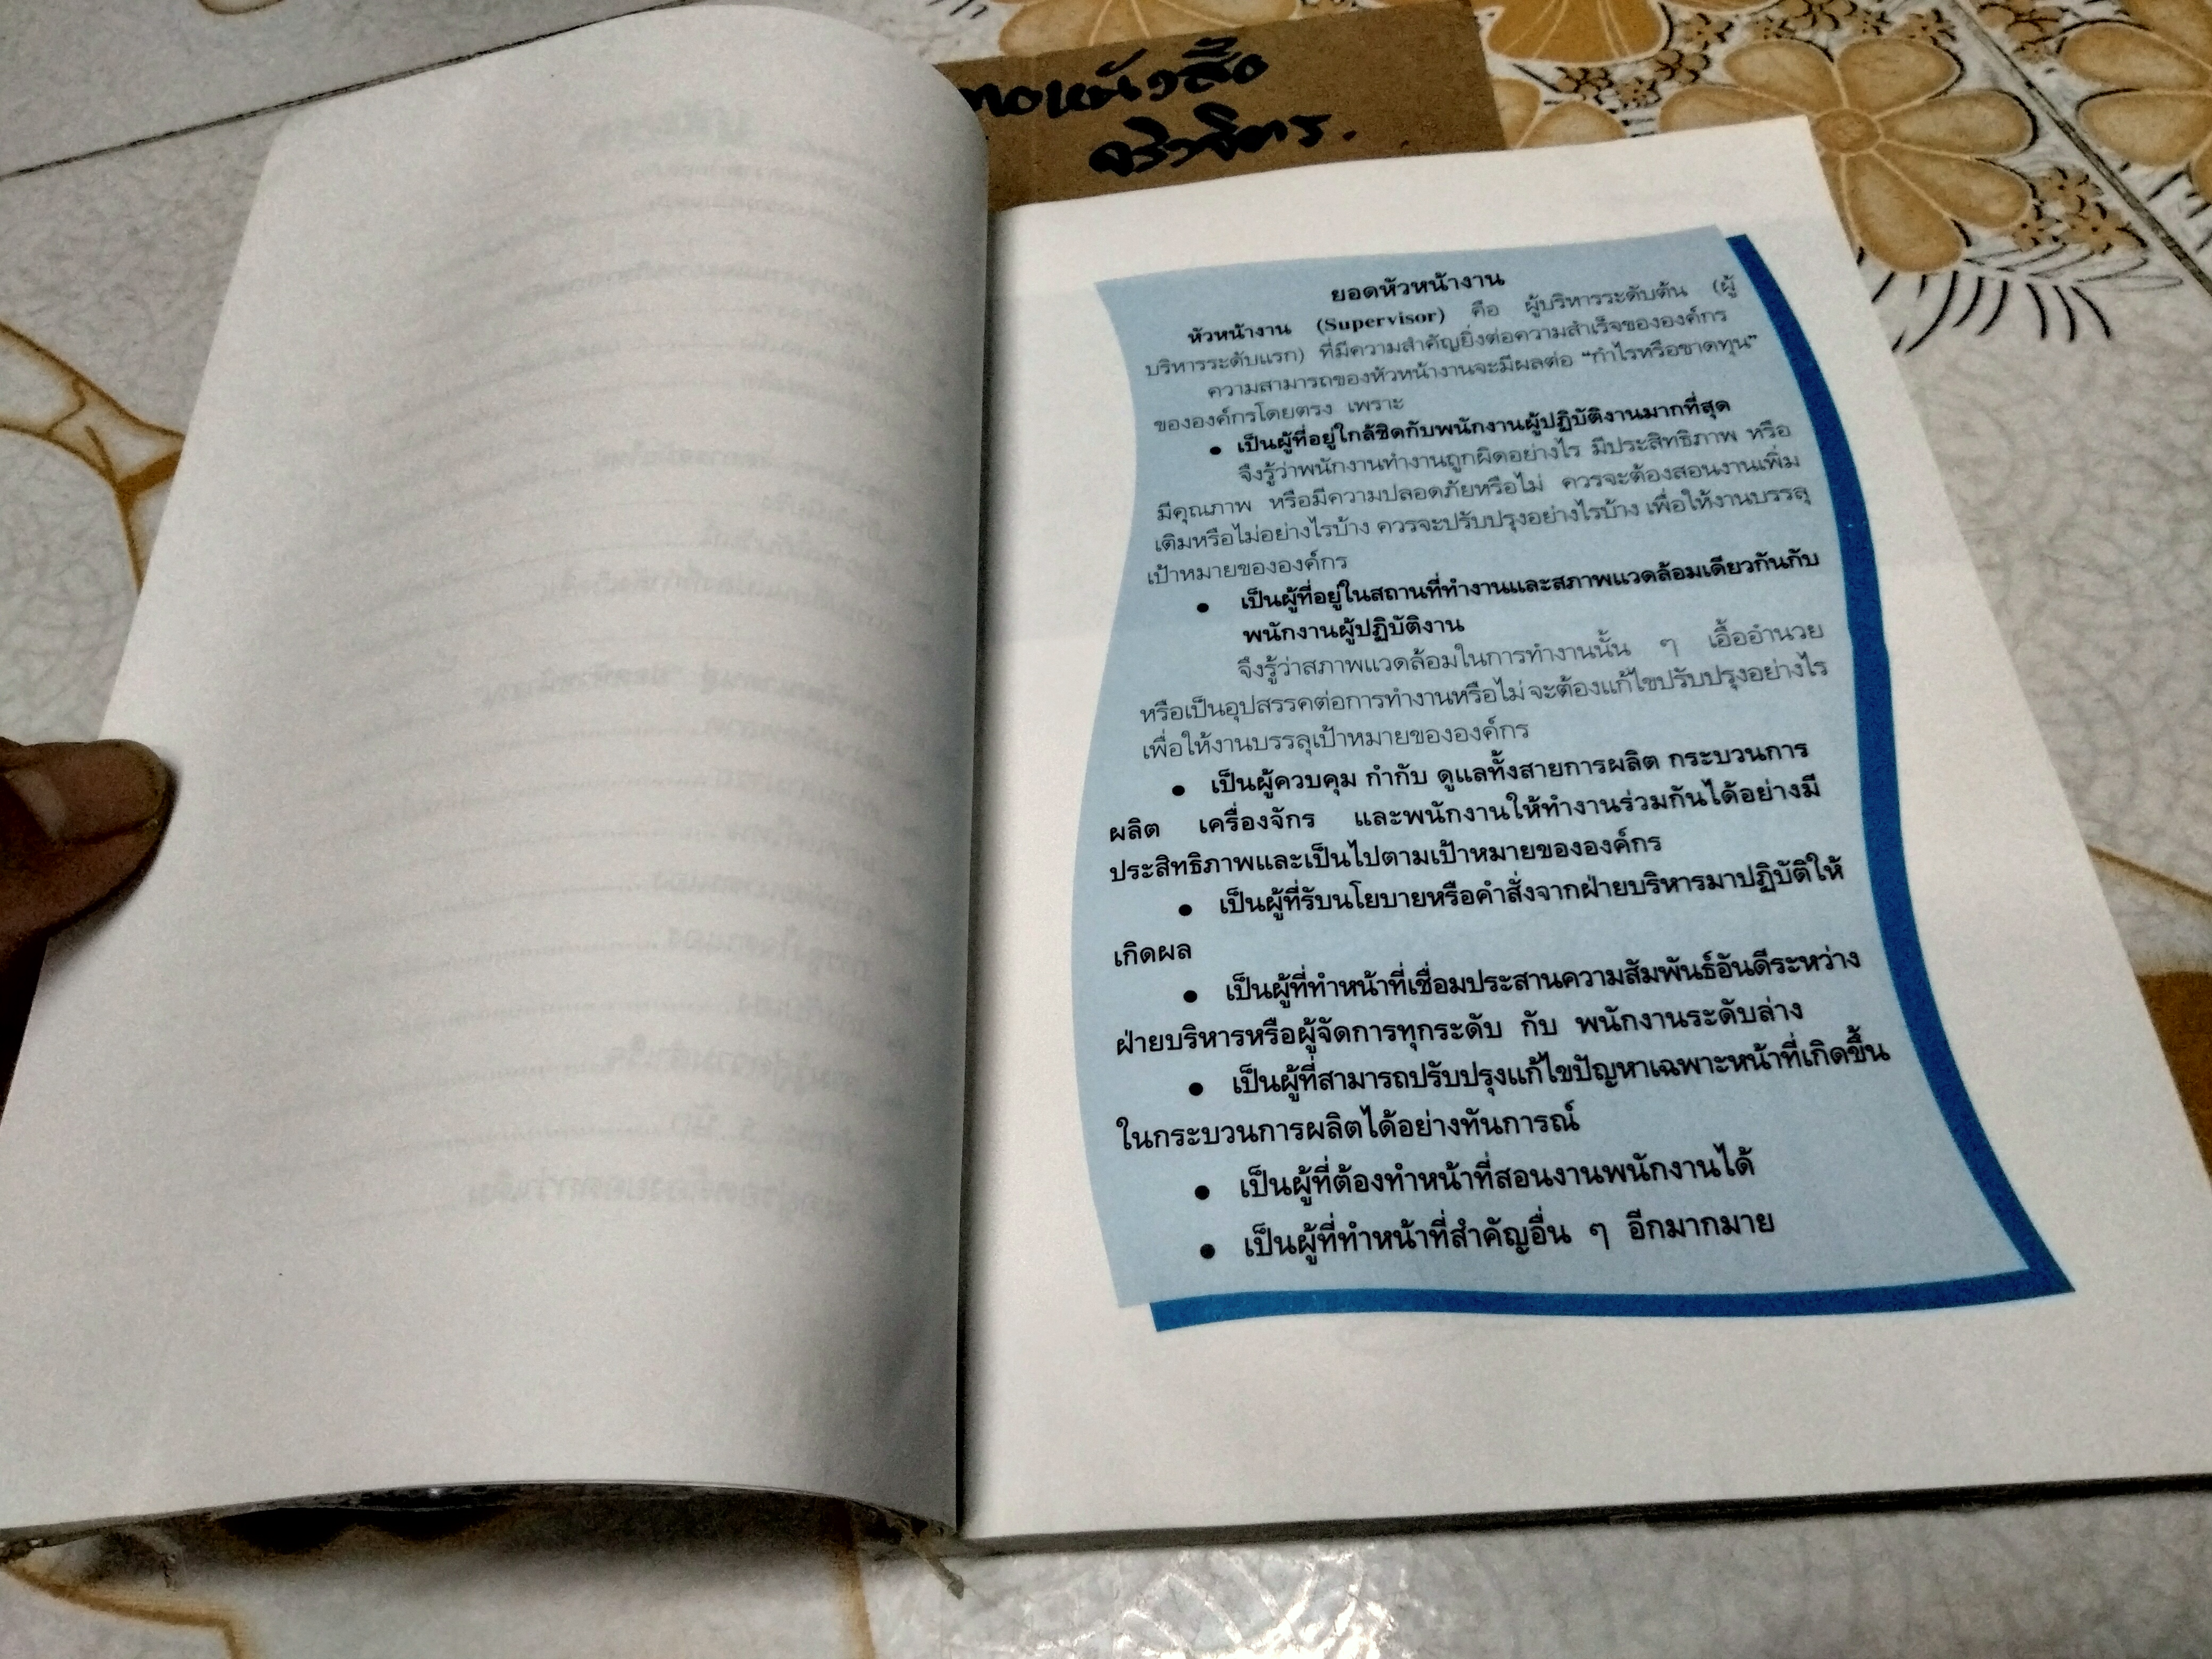 ยอดหัวหน้างาน
หัวหน้างาน (Supervisor) คือ ผู้บริหารระดับต้น (ผู้
บริหารระดับแรก) ที่มีความสำคัญยิ่งต่อความสำเร็จขององค์กร
ความสามารถของหัวหน้างานจะมีผลต่อ “กำไรหรือขาดทุน”
ขององค์กรโดยตรง เพราะ
• เป็นผู้ที่อยู่ใกล้ชิดกับพนักงานผู้ปฏิบัติงานมากที่สุด
จึงรู้ว่าพนักงานทำงานถูกผิดอย่างไร มีประสิทธิภาพ หรือ
มีคุณภาพ หรือมีความปลอดภัยหรือไม่ ควรจะต้องสอนงานเพิ่ม
เติมหรือไม่อย่างไรบ้าง ควรจะปรับปรุงอย่างไรบ้าง เพื่อให้งานบรรลุ
เป้าหมายขององค์กร
• เป็นผู้ที่อยู่ในสถานที่ทำงานและสภาพแวดล้อมเดียวกันกับ
พนักงานผู้ปฏิบัติงาน
จึงรู้ว่าสภาพแวดล้อมในการทำงานนั้น ๆ เอื้ออำนวย
หรือเป็นอุปสรรคต่อการทำงานหรือไม่ จะต้องแก้ไขปรับปรุงอย่างไร
เพื่อให้งานบรรลุเป้าหมายขององค์กร
• เป็นผู้ควบคุม กำกับ ดูแลทั้งสายการผลิต กระบวนการ
ผลิต เครื่องจักร และพนักงานให้ทำงานร่วมกันได้อย่างมี
ประสิทธิภาพและเป็นไปตามเป้าหมายขององค์กร
• เป็นผู้ที่รับนโยบายหรือคำสั่งจากฝ่ายบริหารมาปฏิบัติให้
เกิดผล
• เป็นผู้ที่ทำหน้าที่เชื่อมประสานความสัมพันธ์อันดีระหว่าง
ฝ่ายบริหารหรือผู้จัดการทุกระดับ กับ พนักงานระดับล่าง
• เป็นผู้ที่สามารถปรับปรุงแก้ไขปัญหาเฉพาะหน้าที่เกิดขึ้น
ในกระบวนการผลิตได้อย่างทันการณ์
• เป็นผู้ที่ต้องทำหน้าที่สอนงานพนักงานได้
• เป็นผู้ที่ทำหน้าที่สำคัญอื่น ๆ อีกมากมาย